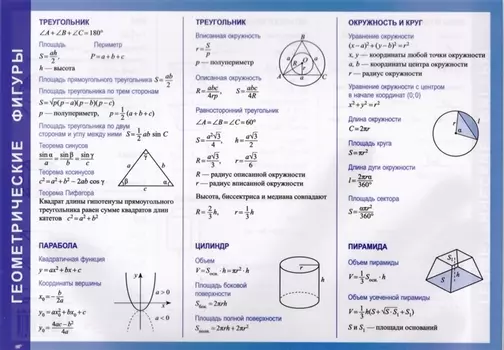 ГЕОМЕТРИЧЕСКИЕ ФИГУРЫ
ТРЕУГОЛЬНИК
∠A+∠B+∠C=180°
Площадь Периметр
S=ah/2, P=a+b+c
h — высота
Площадь прямоугольного треугольника S=ab/2
Площадь треугольника по трем сторонам
S=√p(p−a)(p−b)(p−c)
p — полупериметр, p=1/2(a+b+c)
Площадь треугольника по двум
сторонам и углу между ними S=1/2 ab sin C
Теорема синусов
sin α/a = sin β/b = sin γ/c
Теорема косинусов
c²=a²+b²−2ab cos γ
Теорема Пифагора
Квадрат длины гипотенузы прямоугольного
треугольника равен сумме квадратов длин
катетов c²=a²+b²
γ
b a
α β
c
ТРЕУГОЛЬНИК
Вписанная окружность
r=S/p
p — полупериметр
Описанная окружность
R=abc/4rp, R=abc/4S
Равносторонний треугольник
∠A=∠B=∠C=60°
S=a²√3/4 h=a√3/2
R=a√3/3 r=a√3/6
R — радиус описанной окружности
r — радиус вписанной окружности
Высота, биссектриса и медиана совпадают
R=2/3h, r=1/3h
B
R
r
A C
ОКРУЖНОСТЬ И КРУГ
Уравнение окружности
(x−a)²+(y−b)²=r²
x, y — координаты любой точки окружности
a, b — координаты центра окружности
r — радиус окружности
Уравнение окружности с центром
в начале координат (0; 0)
x²+y²=r²
Длина окружности
C=2πr
Площадь круга
S=πr²
Длина дуги окружности
l=2πrα/360°
Площадь сектора
S=απr²/360°
r
α
l
ПАРАБОЛА
Квадратичная функция
y=ax²+bx+c
Координаты вершины
x₀=−b/2a
y₀=ax₀²+bx₀+c
y₀=4ac−b²/4a
y
a>0
x
a<0
ЦИЛИНДР
Объем
V=Sосн.·h=πr²·h
Площадь боковой
поверхности
Sбок.=2πrh
Площадь полной поверхности
Sполн.=2πrh+2πr²
r
h
ПИРАМИДА
Объем пирамиды
V=1/3Sосн.·h
Объем усеченной пирамиды
V=1/3h(S+√S·S₁+S₁)
S и S₁ — площади оснований
S₁
h
S